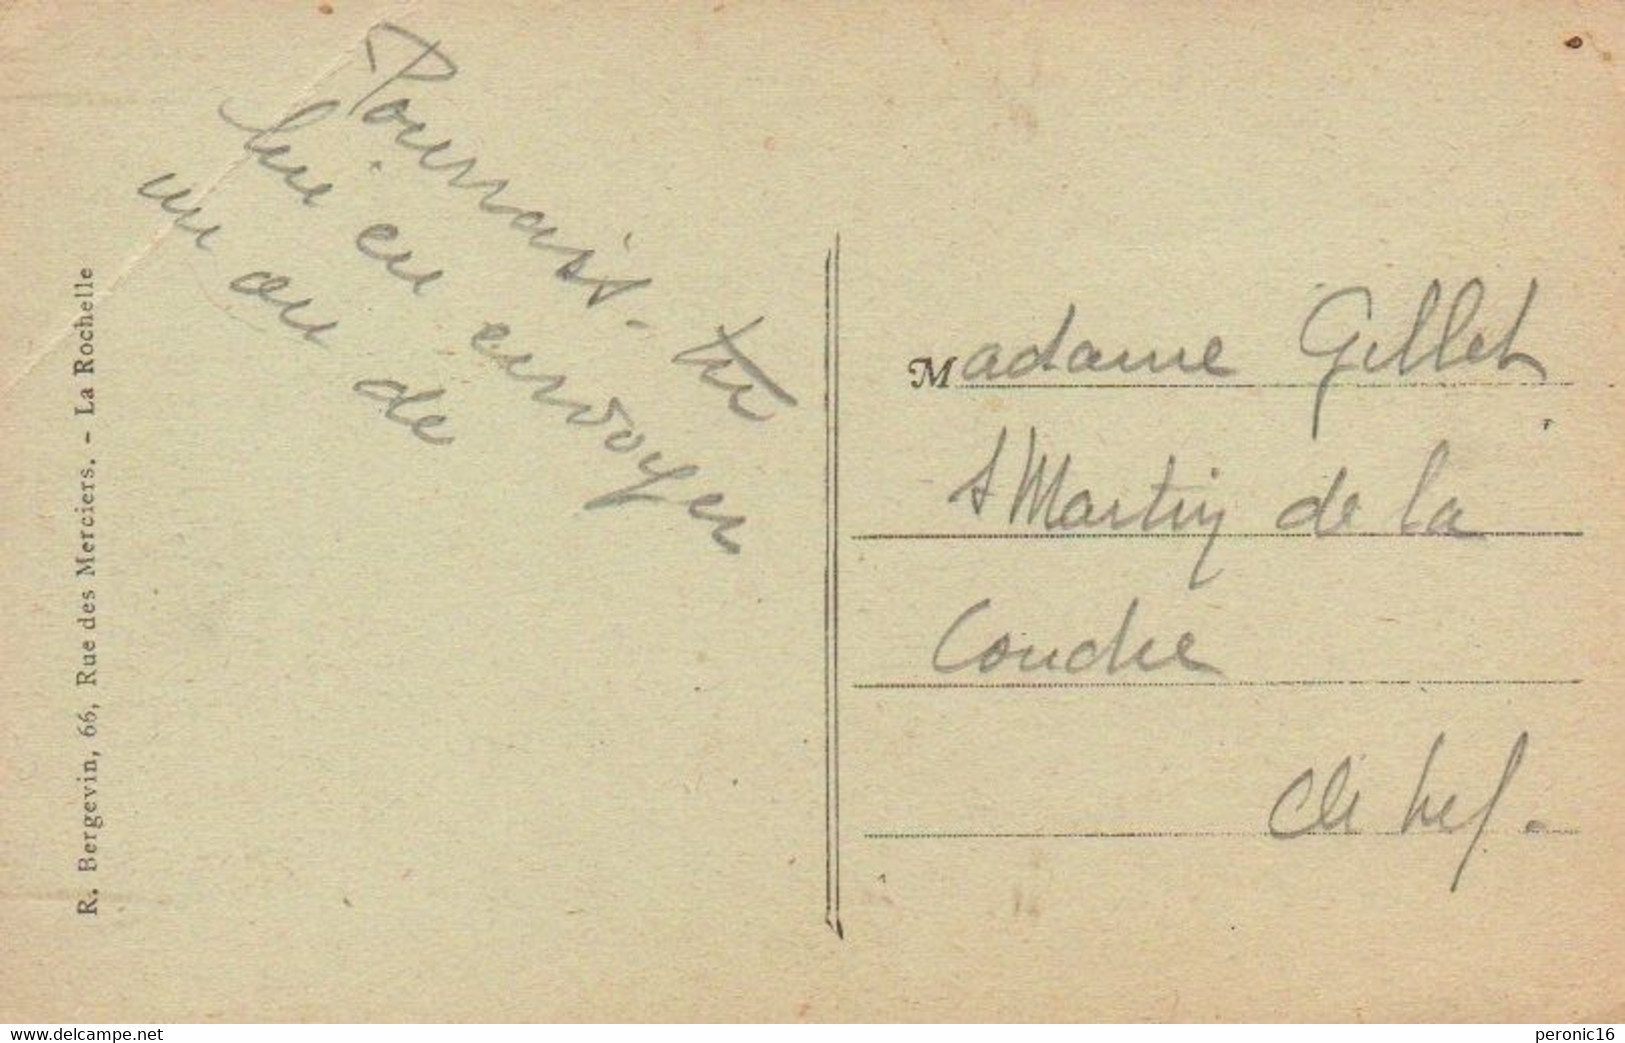 Pourrais-tu
lui en envoyer
un ou de
R. Bergevin, 66, Rue des Merciers. - La Rochelle
Madame Gillet
St Martin de la
Coudre
Ch Inf.
www.delcampe.net
peronic16